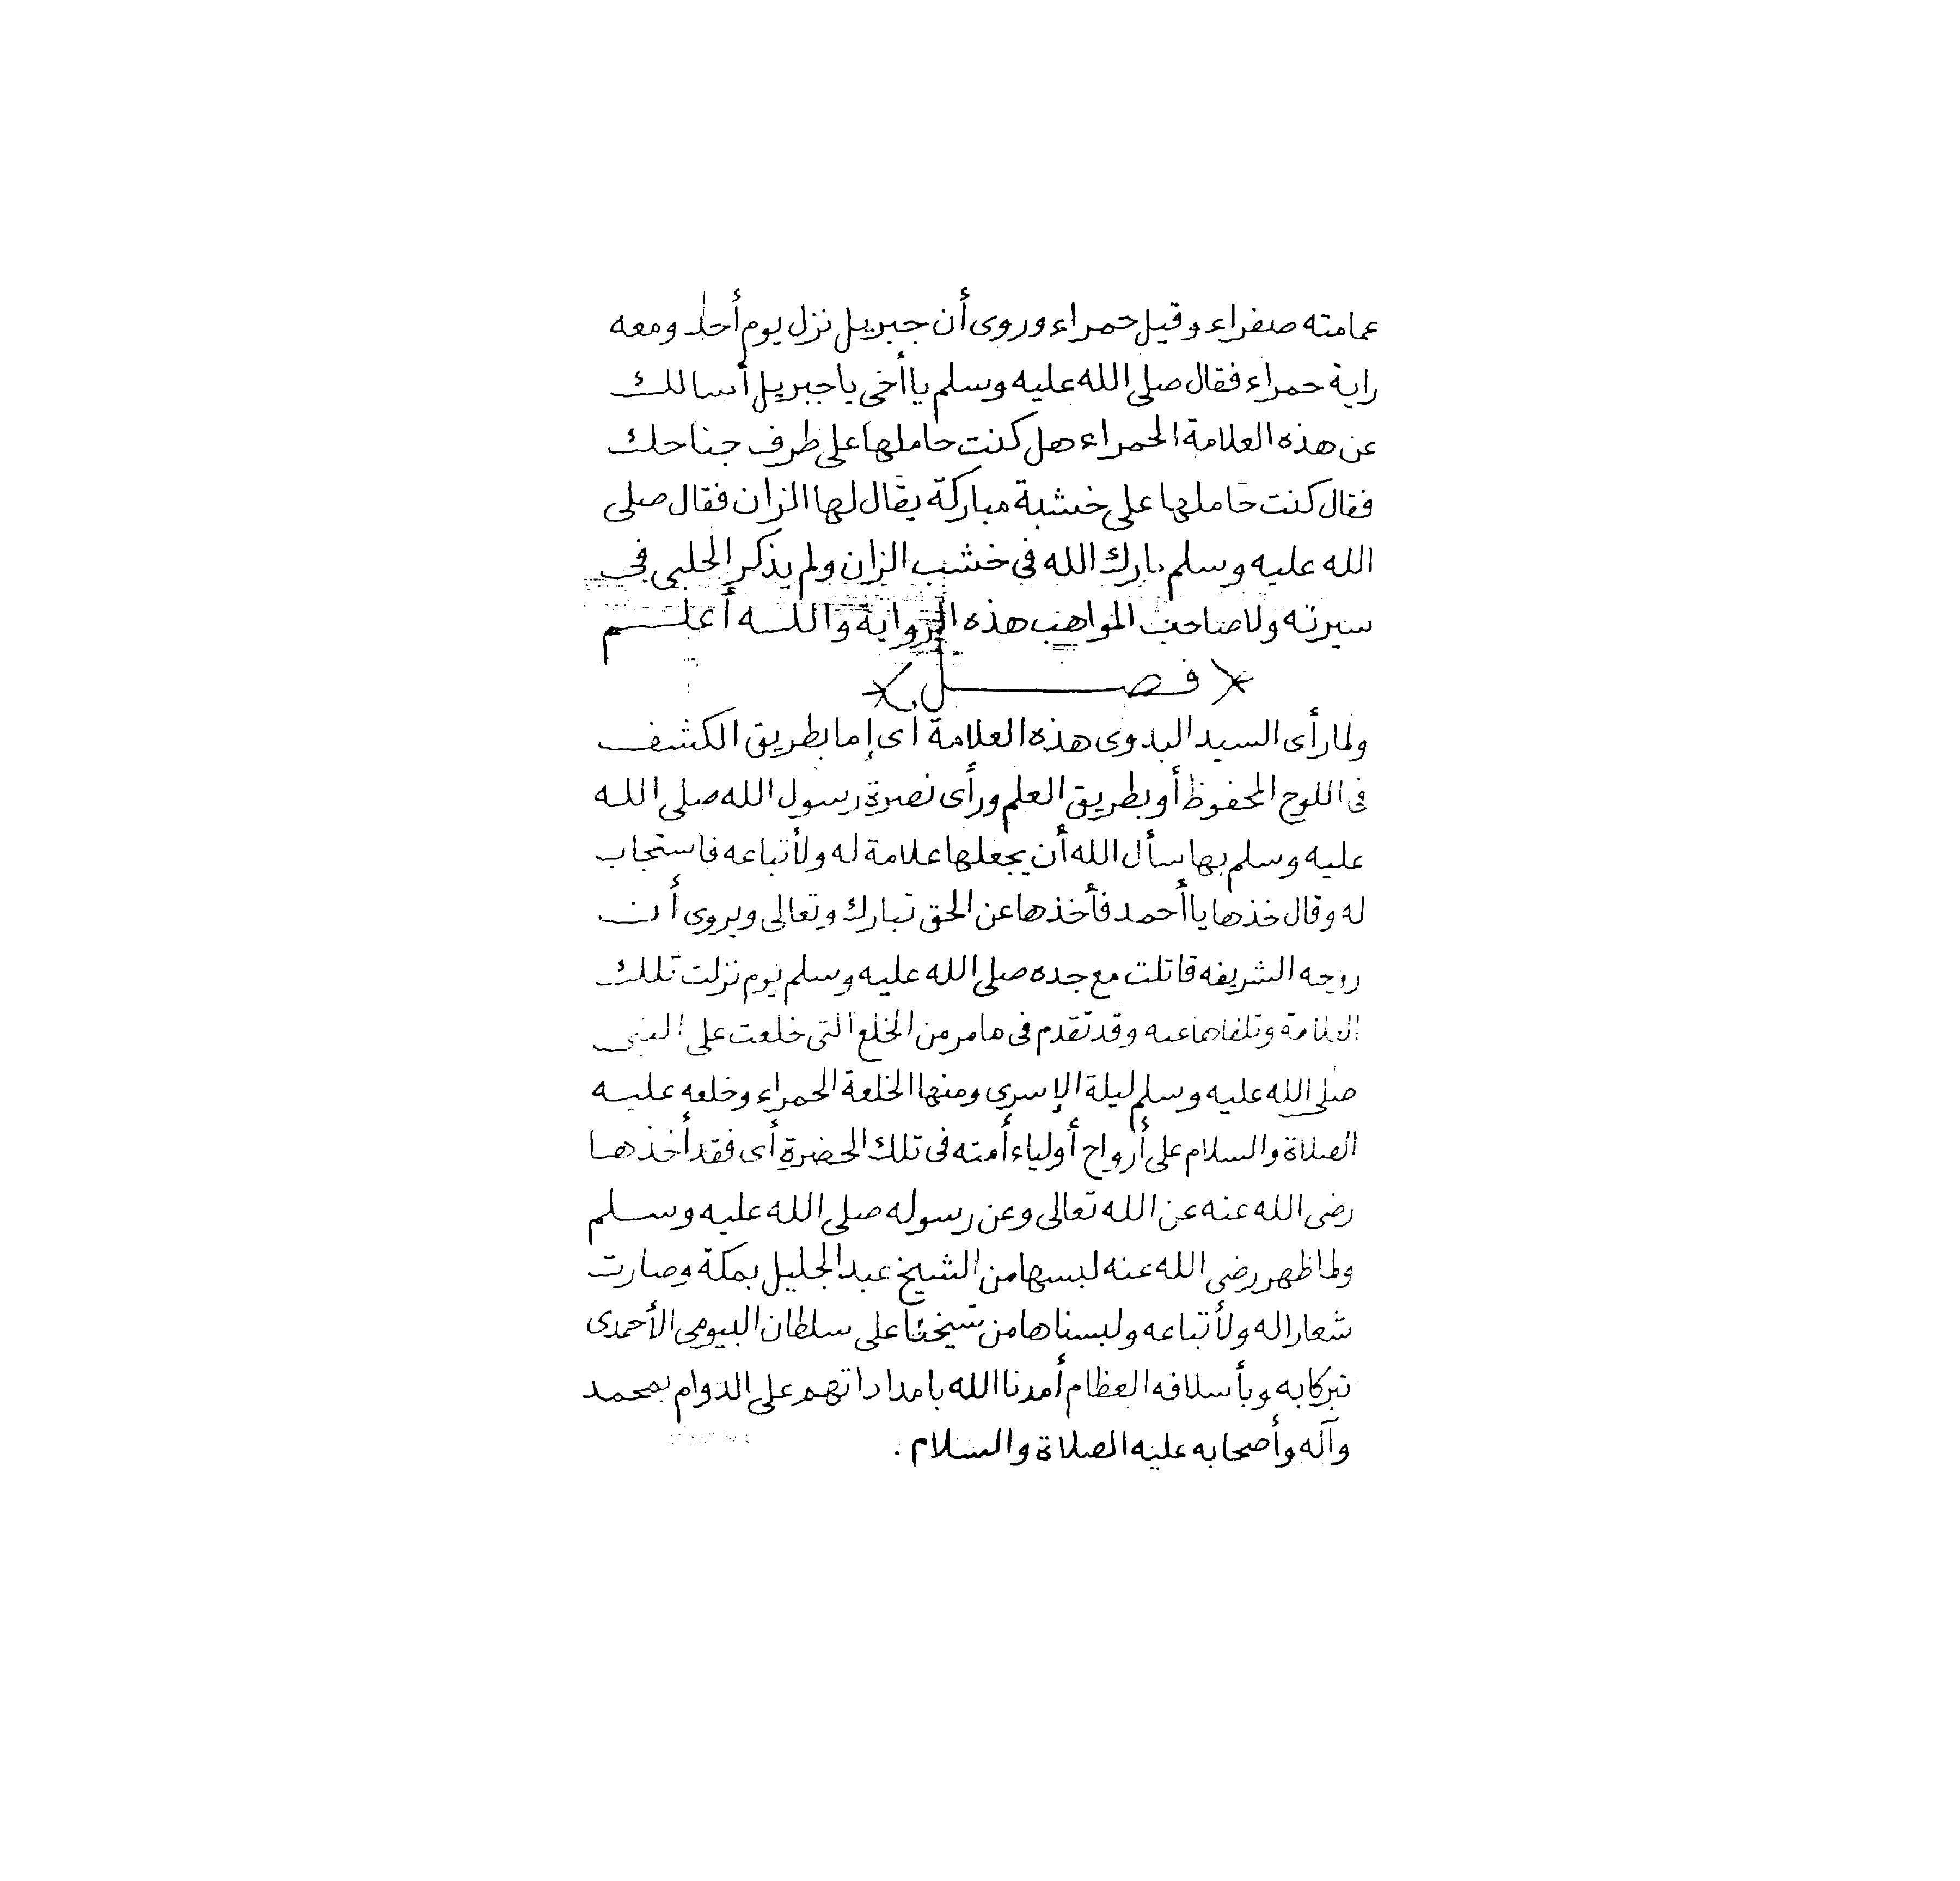 عمامته صفراء وقيل حمراء وروى أن جبريل نزل يوم أحد ومعه
راية حمراء فقال صلى الله عليه وسلم يا أخى يا جبريل أسالك
عن هذه العلامة الحمراء هل كنت حاملها على طرف جناحك
فقال كنت حاملها على خشبة مباركة يقال لها الزان فقال صلى
الله عليه وسلم بارك الله فى خشب الزان ولم يذكر الحلبى فى
سيرته ولا صاحب المواهب هذه الرواية والله أعلم
﴿فصل﴾
ولما رأى السيد البدوى هذه العلامة أى إما بطريق الكشف
فى اللوح المحفوظ أو بطريق العلم ورأى نصرة رسول الله صلى الله
عليه وسلم بها سأل الله أن يجعلها علامة له ولأتباعه فاستجاب
له وقال خذها يا أحمد فأخذها عن الحق تبارك وتعالى ويروى أن
روحه الشريفه قاتلت مع جده صلى الله عليه وسلم يوم نزلت تلك
العلامة وتلقاها عنه وقد تقدم فى ما مر من الخلع التى خلعت على النبى
صلى الله عليه وسلم ليلة الإسرى ومنها الخلعة الحمراء وخلعه عليه
الصلاة والسلام على أرواح أولياء أمته فى تلك الحضرة أى فقد أخذها
رضى الله عنه عن الله تعالى وعن رسوله صلى الله عليه وسلم
ولما ظهر رضى الله عنه لبسها من الشيخ عبد الجليل بمكة وصارت
شعارا له ولأتباعه ولبسناها من شيخنا على سلطان البيومى الأحمدى
تبركا به وبأسلافه العظام أمدنا الله بامداداتهم على الدوام بمحمد
وآله وأصحابه عليه الصلاة والسلام .